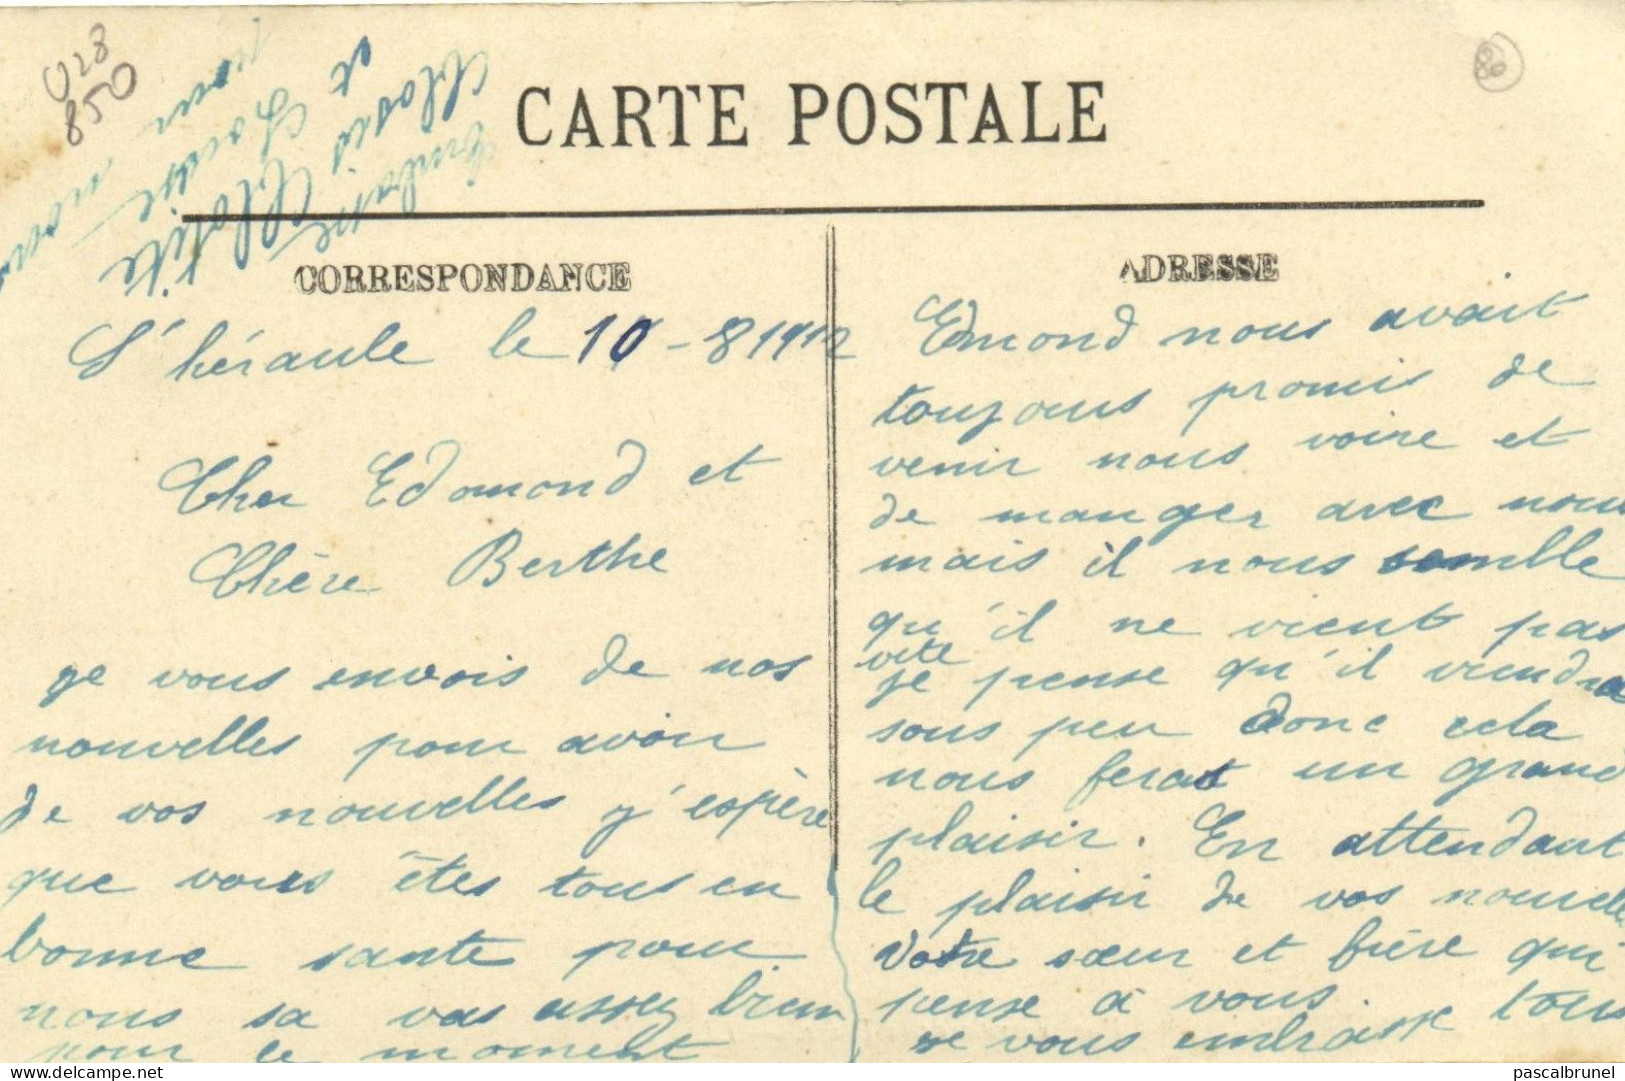 028
850
CARTE POSTALE
CORRESPONDANCE
L'héraule le 10-8 1912
Cher Edomond et
Chère Berthe
je vous envois de nos
nouvelles pour avoir
de vos nouvelles j'espère
que vous êtes tous en
bonne sante pour
nous sa vas assez bien
pour le moment
ADRESSE
Edmond nous avait
toujours promis de
venir nous voire et
de manger avec nous
mais il nous semble
qu'il ne vient pas
vite
je pense qu'il viendra
sous peu donc cela
nous ferat un grand
plaisir. En attendant
le plaisir de vos nouvelle
Votre sœur et frère qui
pense a vous.
je vous embrasse tous
Embrasse Clotilde
Clovis
et Louise
pour nous
pascalbrunel